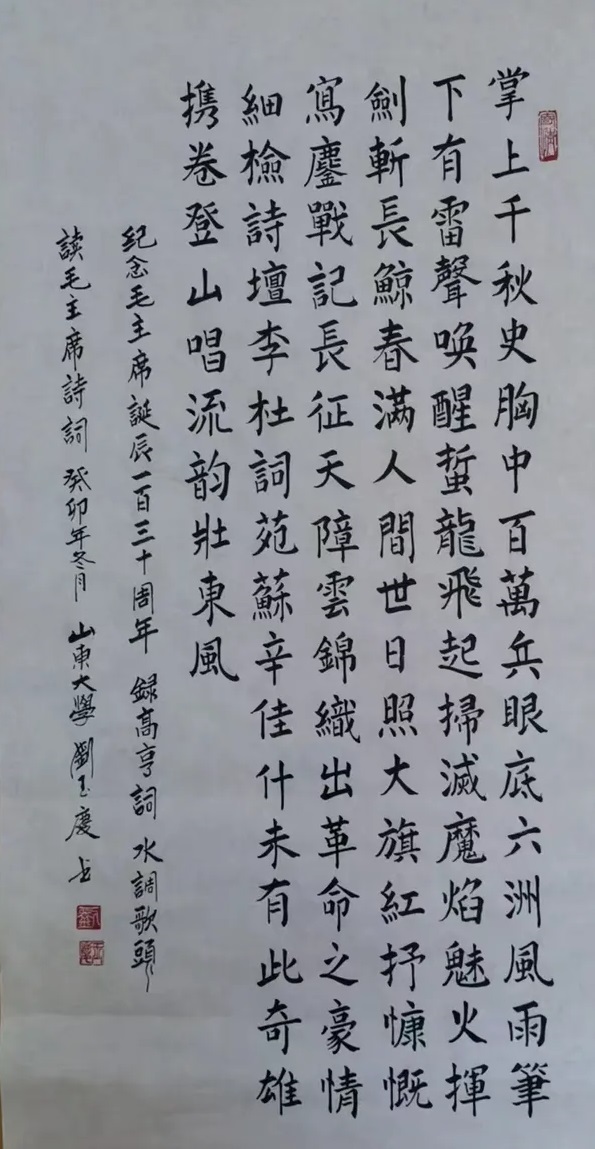 掌上千秋史胸中百萬兵眼底六洲風雨筆
下有雷聲喚醒蜇龍飛起掃滅魔焰魅火揮
劍斬長鯨春滿人間世日照大旗紅抒慷慨
寫鏖戰記長征天障雲錦織出革命之豪情
細檢詩壇李杜詞苑蘇辛佳什未有此奇雄
携卷登山唱流韵壯東風
纪念毛主席誕辰一百三十周年 録高亨詞 水調歌頭
讀毛主席詩詞 癸卯年冬月 山東大學 劉玉慶书